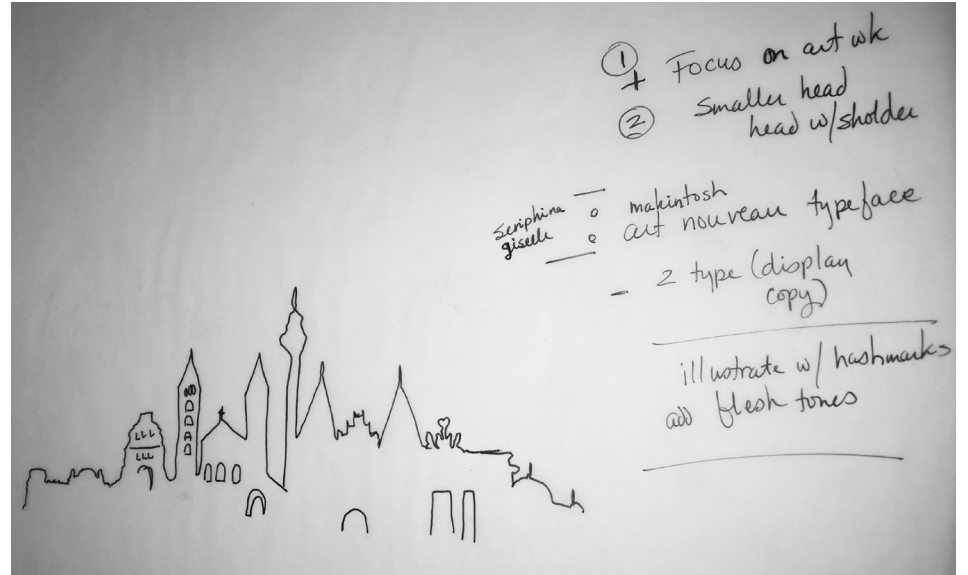 ① Focus on art wk
+
② Smaller head
head w/sholder
Seriphina
giselle
makintosh
art nouveau typeface
- 2 type (display
copy)
illustrate w/ hashmarks
add flesh tones